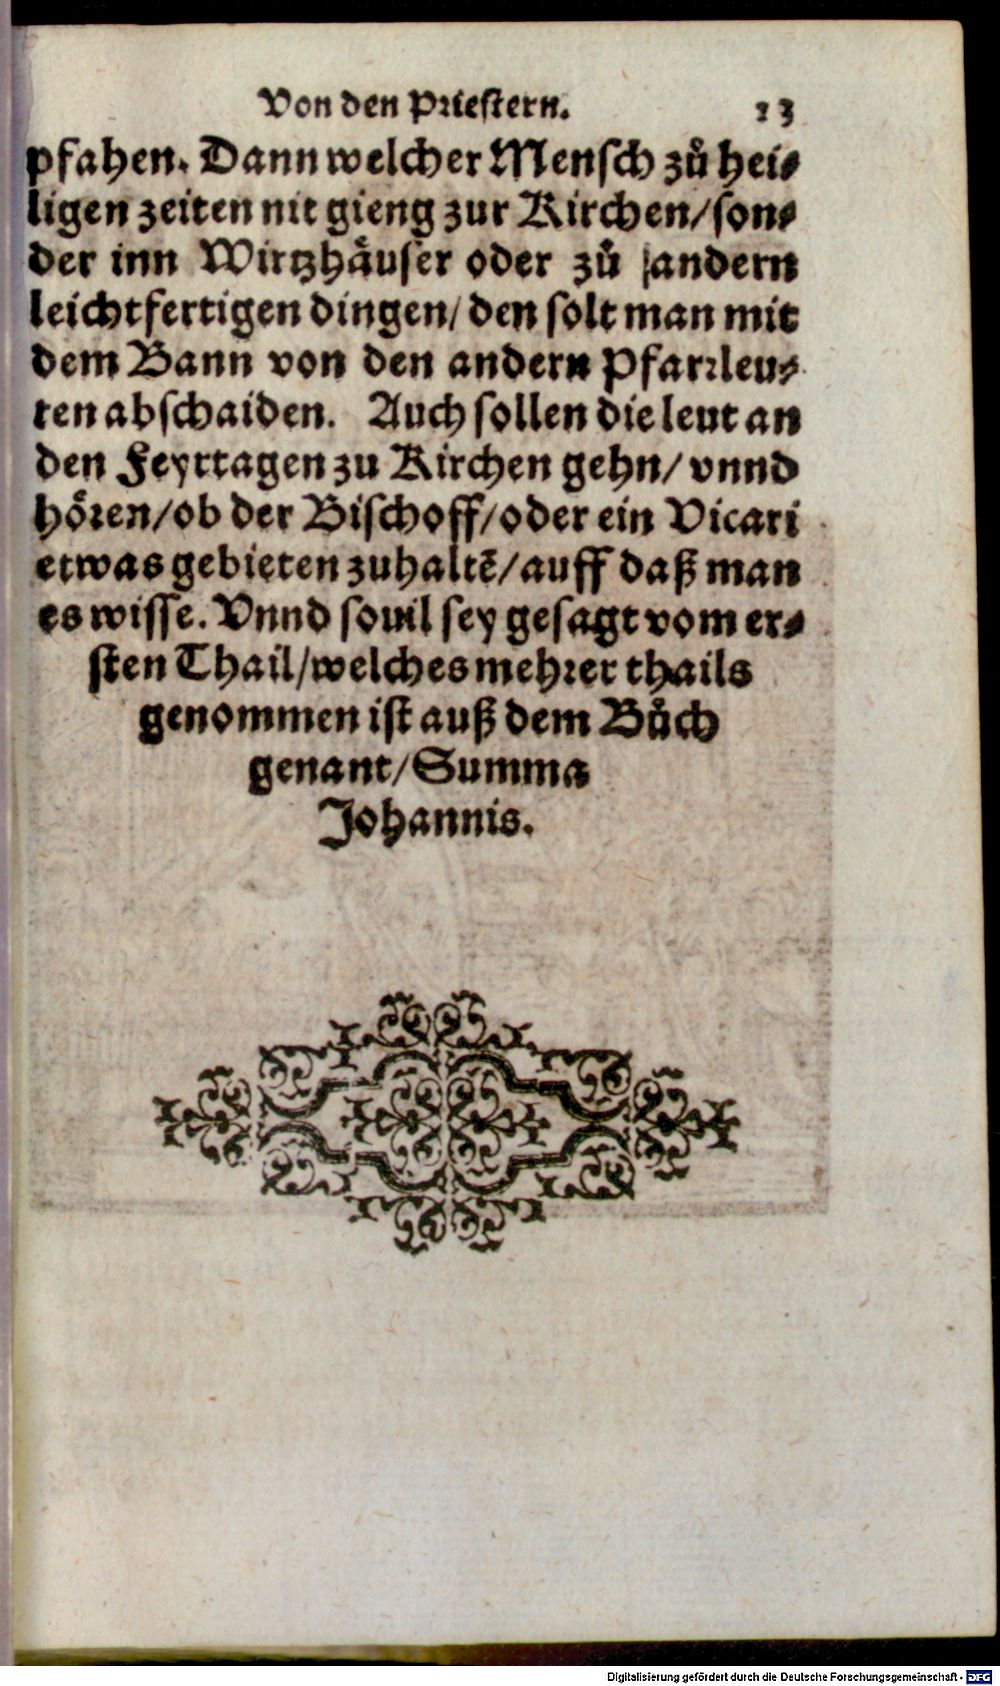 Von den Priestern. 13
pfahen. Dann welcher Mensch zů hei⸗
ligen zeiten nit gieng zur Kirchen/ son⸗
der inn Wirtzhåuser oder zů andern
leichtfertigen dingen/ den solt man mit
dem Bann von den andern Pfarrleu⸗
ten abschaiden. Auch sollen die leut an
den Feyrtagen zu Kirchen gehn/ vnnd
hören/ ob der Bischoff/ oder ein Vicari
etwas gebieten zuhaltẽ/ auff daß man
es wisse. Vnnd souil sey gesagt vom er⸗
sten Thail/ welches mehrer thails
genommen ist auß dem Bůch
genant/ Summa
Johannis.
Digitalisierung gefördert durch die Deutsche Forschungsgemeinschaft - DFG